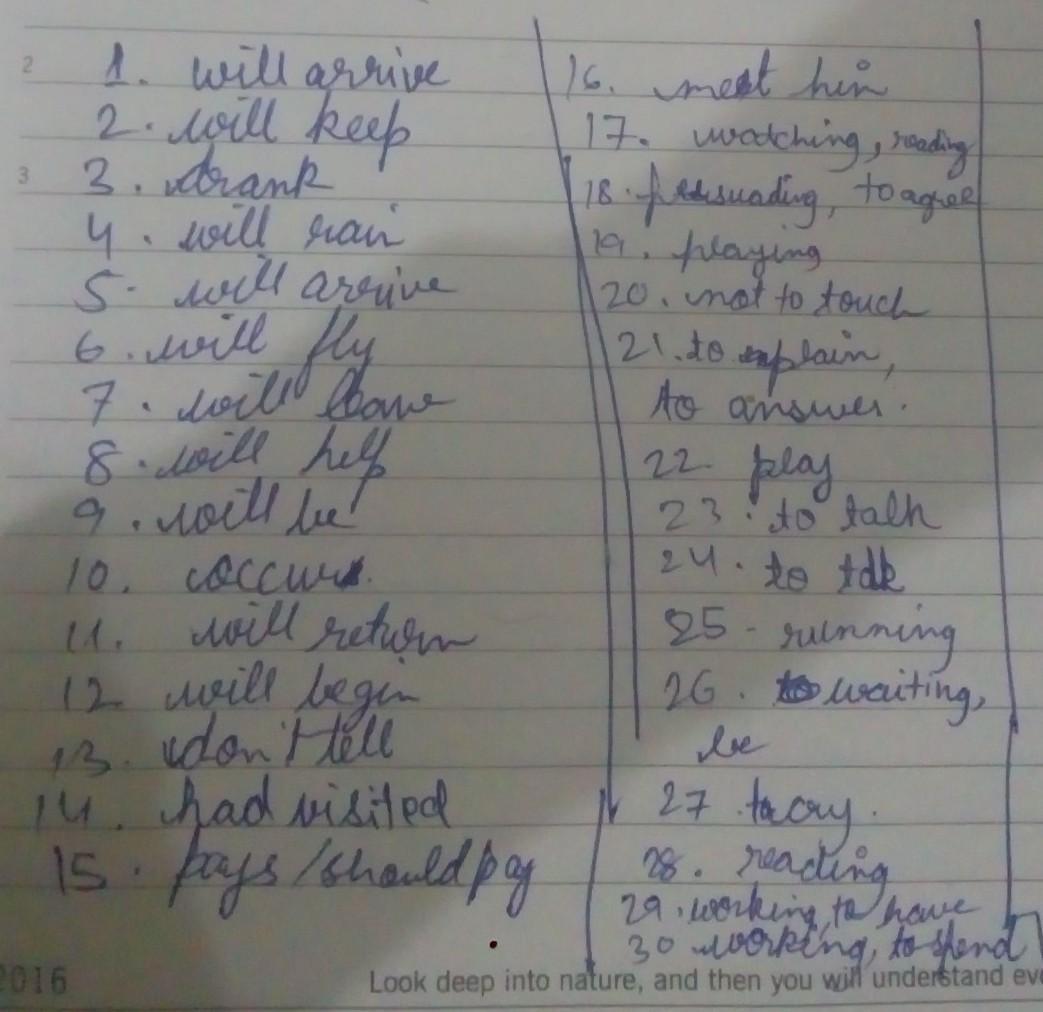 2
1. will arrive
2. will keep
3
3. drank
4. will rain
5. will arrive
6. will fly
7. will leave
8. will help
9. will be
10. occurs.
11. will return
12 will begin
13. don't tell
14. had visited
15. pays/should pay
16. meet him
17. watching, reading
18. persuading, to agree
19. playing
20. not to touch
21. to explain,
to answer.
22 play
23. to talk
24. to talk
25- running
26. waiting,
be
27. to cry.
28. reading
29. working, to have
30 working, to spend
2016
Look deep into nature, and then you will understand eve